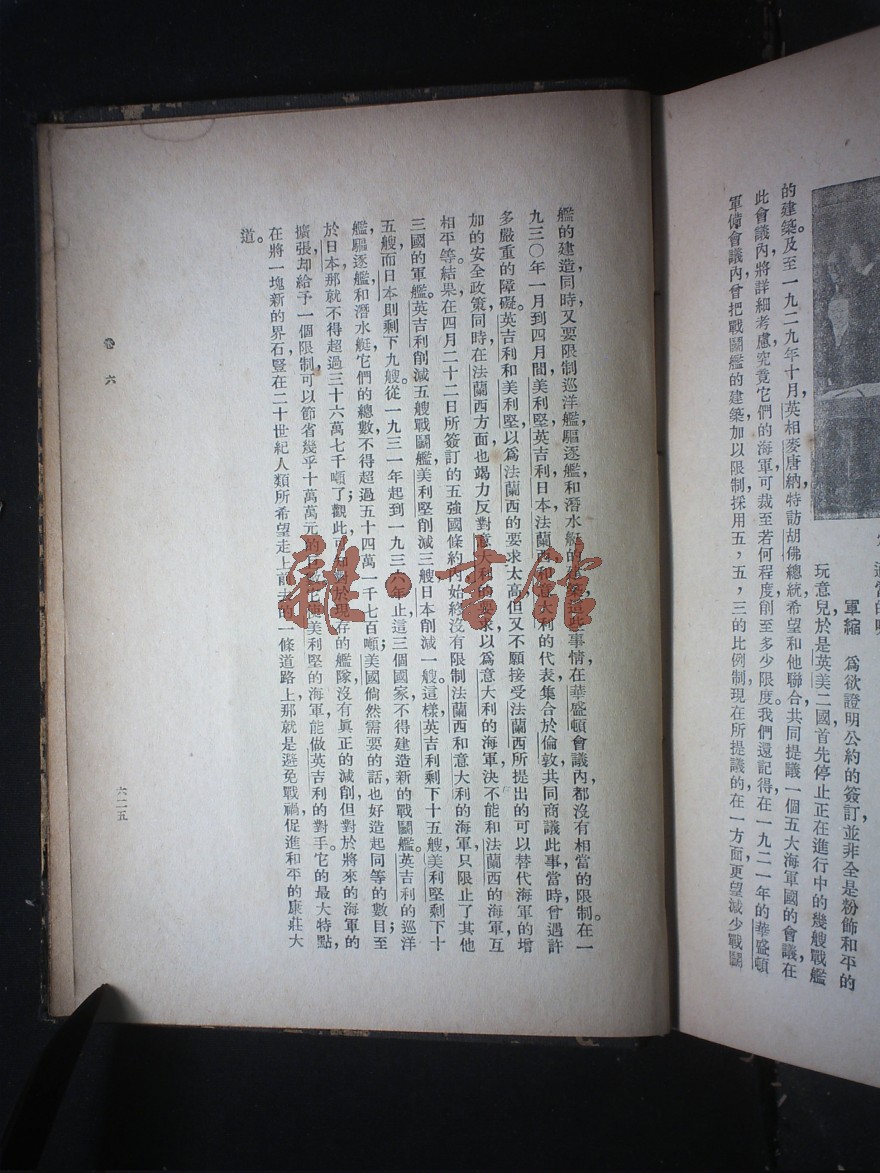 軍縮　為欲證明公約的簽訂，並非全是粉飾和平的
玩意兒，於是英美二國首先停止正在進行中的幾艘戰艦
的建築。及至一九二九年十月，英相麥唐納特訪胡佛總統，希望和他聯合共同提議一個五大海軍國的會議，在
此會議內，將詳細考慮究竟它們的海軍可裁至若何程度，削至多少限度。我們還記得在一九二一年的華盛頓
軍備會議內，曾把戰鬬艦的建築加以限制，採用五，五，三的比例制，現在所提議的，在一方面更望減少戰鬬
艦的建造，同時又要限制巡洋艦，驅逐艦和潛水艇的建築，這些事情，在華盛頓會議內，都沒有相當的限制。在一
九三〇年一月到四月間，美利堅，英吉利，日本，法蘭西和意大利的代表，集合於倫敦，共同商議此事，當時曾遇許
多嚴重的障礙。英吉利和美利堅，以為法蘭西的要求太高，但又不願接受法蘭西所提出的可以替代海軍的增
加的安全政策，同時在法蘭西方面，也竭力反對意大利的要求，以為意大利的海軍，決不能和法蘭西的海軍互
相平等。結果在四月二十二日所簽訂的五強國條約內，始終沒有限制法蘭西和意大利的海軍，只限止了其他
三國的軍艦。英吉利削減五艘戰鬬艦，美利堅削減三艘，日本削減一艘。這樣，英吉利剩下十五艘，美利堅剩下十
五艘，而日本則剩下九艘。從一九三一年起到一九三六年止，這三個國家不得建造新的戰鬬艦。英吉利的巡洋
艦，驅逐艦和潛水艇，它們的總數不得超過五十四萬一千七百噸；美國倘然需要的話，也好造起同等的數目；至
於日本，那就不得超過三十六萬七千噸了。觀此可知對於現存的艦隊，沒有真正的減削，但對於將來的海軍的
擴張，却給予一個限制，可以節省幾乎十萬萬元的巨數，也使美利堅的海軍，能做英吉利的對手。它的最大特點，
在將一塊新的界石，豎在二十世紀人類所希望走上前去的一條道路上，那就是避免戰禍，促進和平的康莊大
道。
卷六
六二五
雜·書館